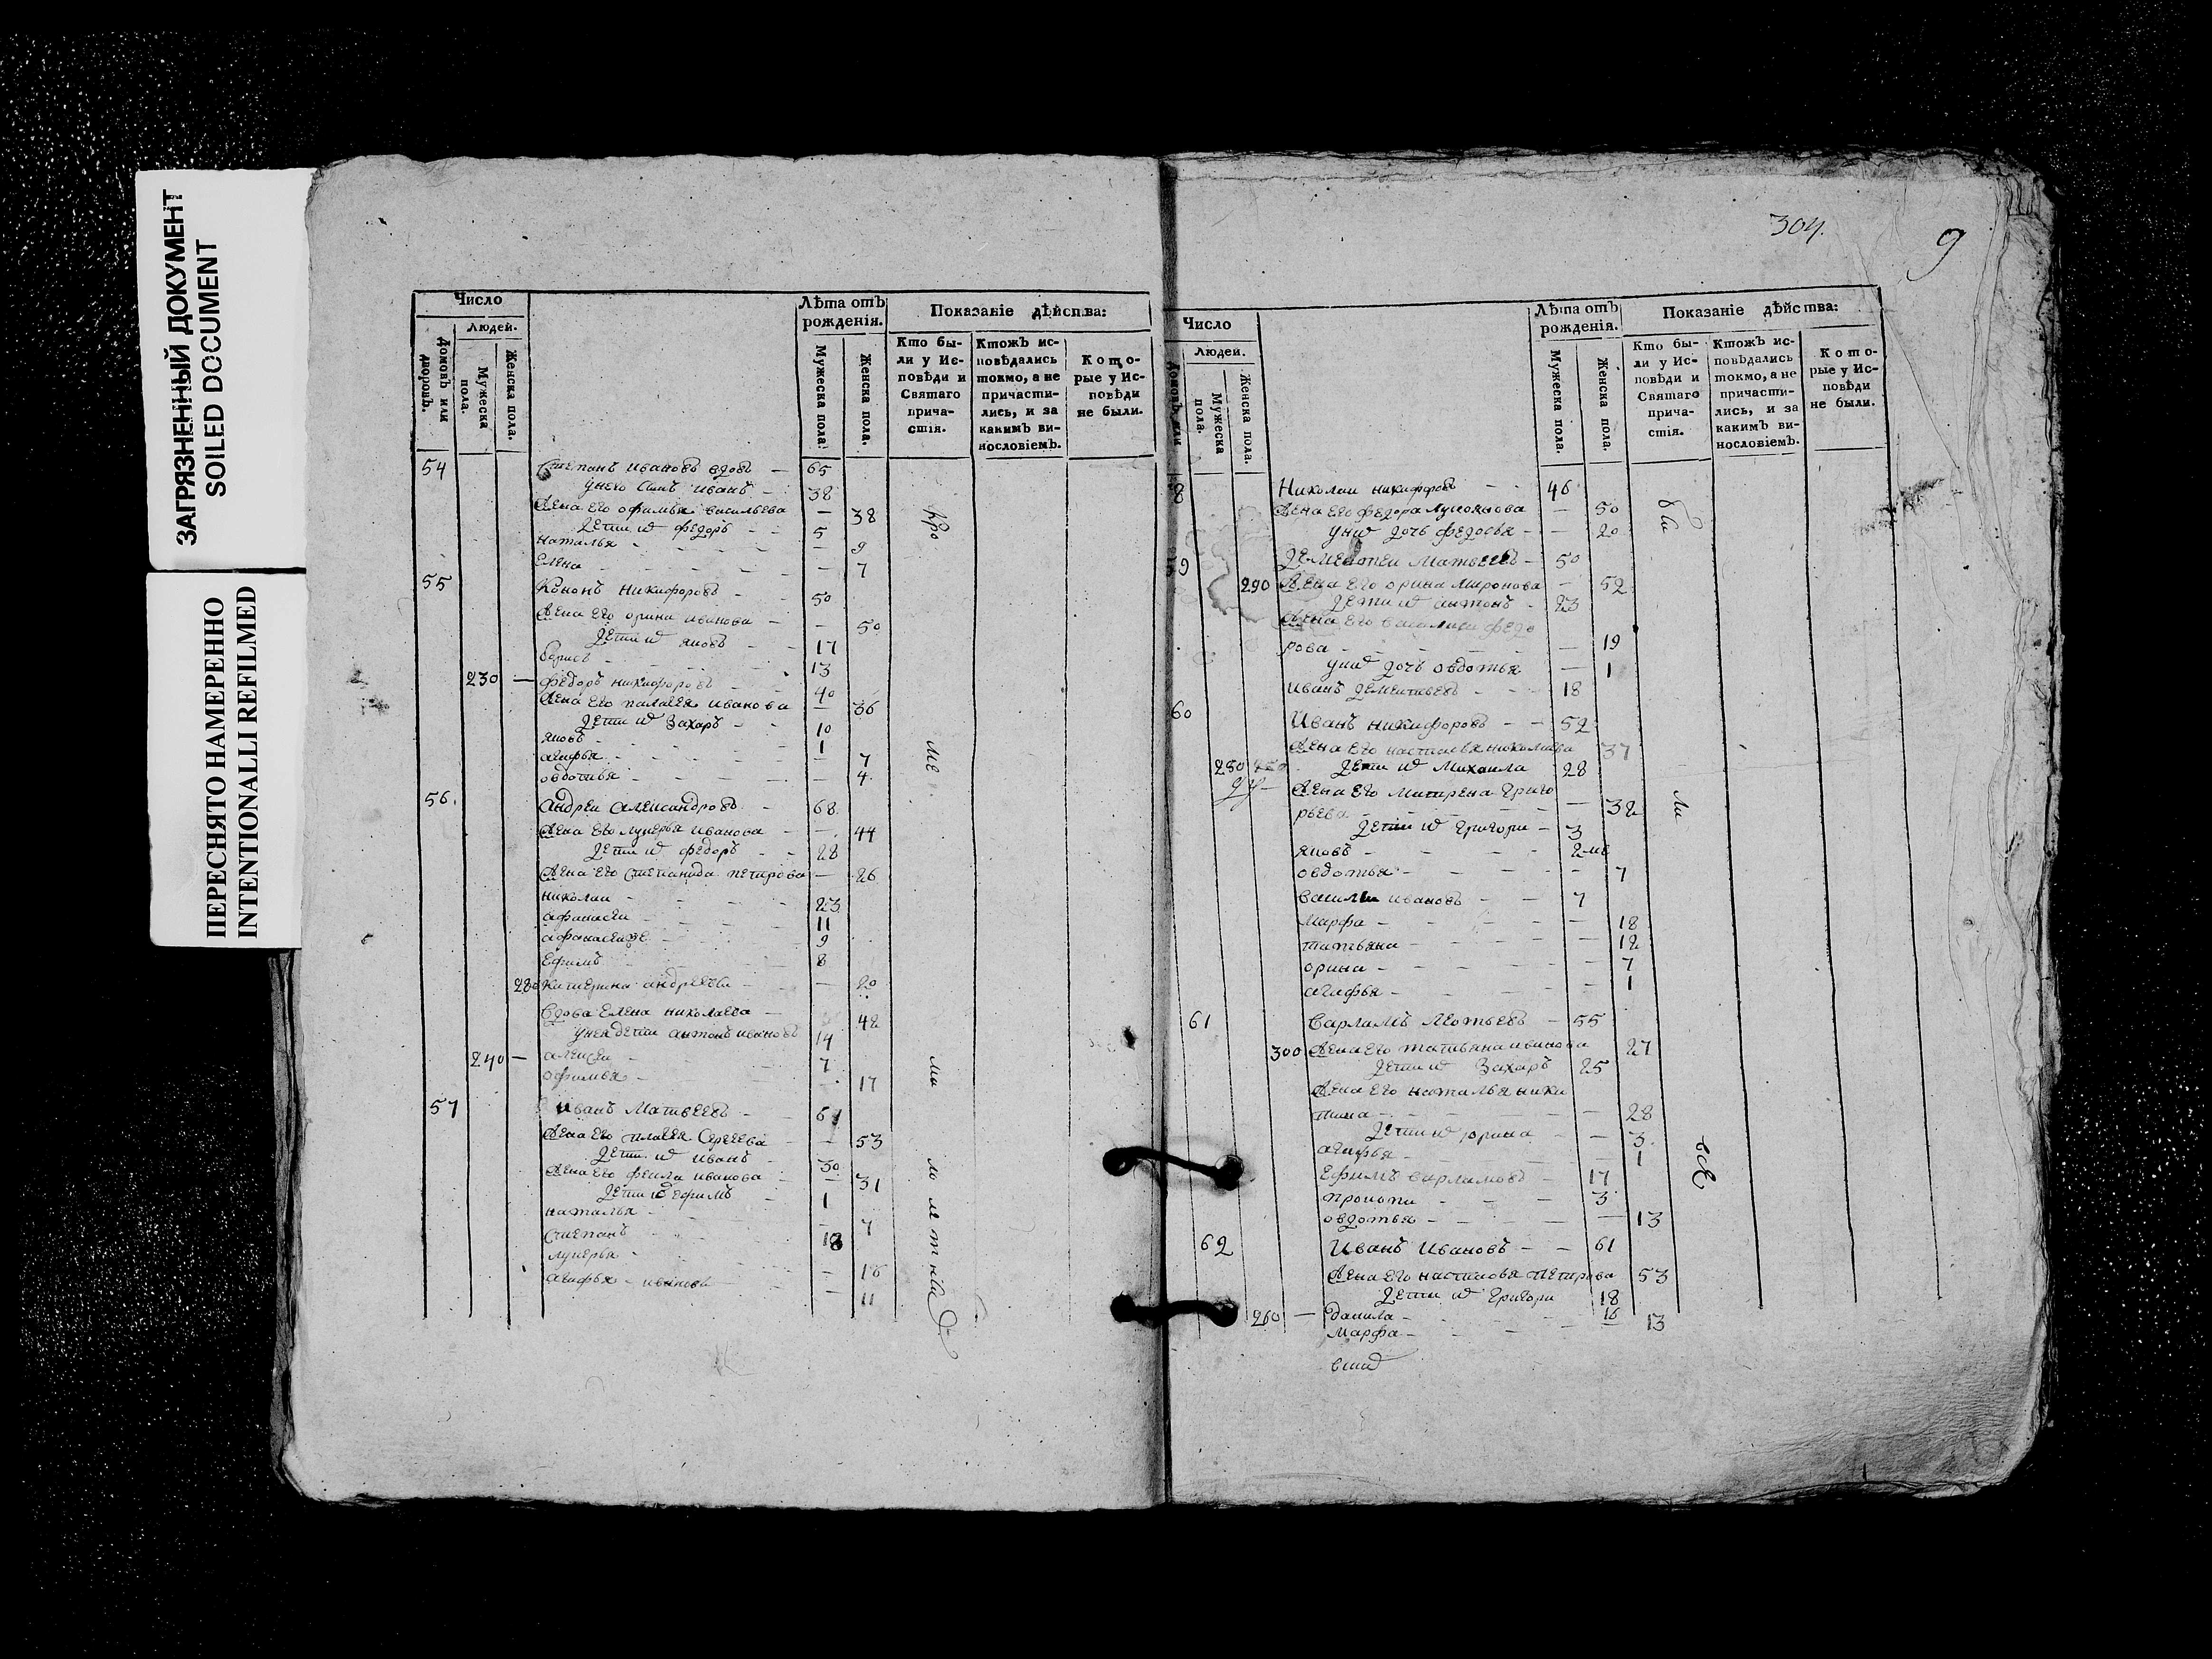 ЗАГРЯЗНЕННЫЙ ДОКУМЕНТ
SOILED DOCUMENT
ПЕРЕСНЯТО НАМЕРЕННО
INTENTIONALLI REFILMED
Число
Людей.
Домовъ или дворовъ.
Мужеска пола.
Женска пола.
Лѣта отъ рожденія.
Мужеска пола.
Женска пола.
Показаніе дѣйства:
Кто были у Исповѣди и Святаго причастія.
Ктожъ исповѣдались токмо, а не причастились, и за какимъ винословіемъ.
Которые у Исповѣди не были.
54 Степанъ Ивановъ вдовъ — 65
у него сынъ Иванъ — 38
Жена его офимья васильева — 38
дети ихъ федоръ — 5
наталья — 9
елена — 7
55 Кононъ Никифоровъ — 50
Жена его орина иванова — 50
дети ихъ яковъ — 17
борисъ — 13
230 — федоръ никифоровъ — 40
Жена его палагея иванова — 36
дети ихъ Захаръ — 10
яковъ — 1
агафья — 7
овдотья — 4
56. андреи александровъ — 68
Жена его лукерья иванова — 44
дети ихъ федоръ — 28
Жена его степанида петрова — 26
николаи — 23
афанасеи — 11
афанасеи же — 9
ефимъ — 8
280 катерина андреева — 20
Вдова елена николаева — 42
у нея дети антонъ ивановъ 14
240 — алексеи — 7
офимья — 17
57 иванъ Матвеевъ — 61
Жена его плагея Сергеева — 53
дети ихъ иванъ — 30
Жена его фекла иванова — 31
дети ихъ ефимъ — 1
наталья — 7
степанъ — 18
лукерья — 16
агафья — иванова 11
304.
9
Число
Людей.
Домовъ или
Мужеска пола.
Женска пола.
Лѣта отъ рожденія.
Мужеска пола.
Женска пола.
Показаніе дѣйства:
Кто были у Исповѣди и Святаго причастія.
Ктожъ исповѣдались токмо, а не причастились, и за какимъ винословіемъ.
Которые у Исповѣди не были.
8 Николаи никифоровъ — 46
Жена его федора лукоянова — 50
у нихъ дочь федосья — 20
59 дементеи Матвеевъ — 50
290 Жена его орина миронова — 52
дети ихъ антонъ — 23
Жена его василиса федо
рова — 19
у нихъ дочь овдотья — 1
иванъ дементьевъ — 18
60 Иванъ никифоровъ — 52
Жена его настасья николаева 37
250 дети ихъ михаила 28
Жена его матрена григо
рьева — 32
дети ихъ григори — 3
яковъ — 2
овдотья — 7
василеи ивановъ — 7
марфа — 18
татьяна — 12
орина — 7
агафья — 1
61 варламъ леотьевъ — 55
300 Жена его татьяна иванова 27
дети ихъ Захаръ 25
Жена его наталья ники
тина — 28
дети ихъ орина — 3
агафья — 1
ефимъ варламовъ — 17
прокопи — 3
овдотья — 13
62 Иванъ Ивановъ — 61
Жена его настасья петрова 53
дети ихъ григори 18
260 — данила — 16
марфа — 13